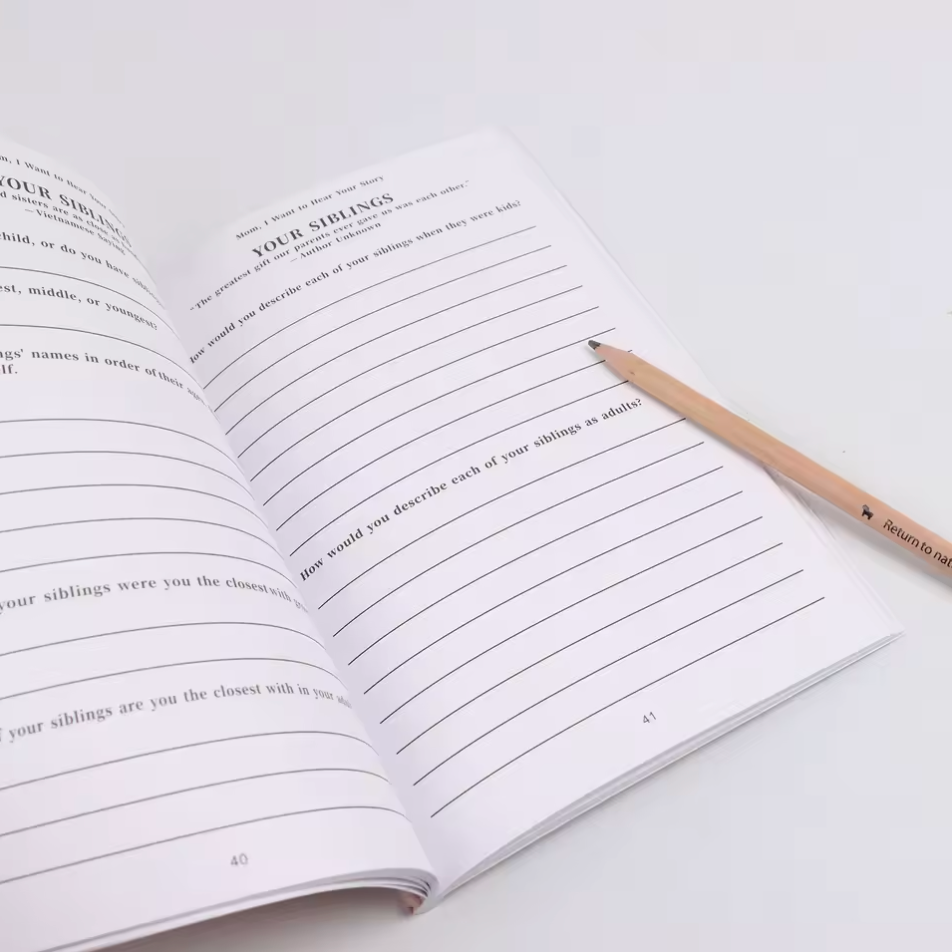 I Want to Hear Your
YOUR SIBLINGS
sisters are as close as
—Vietnamese Saying
child, or do you have
middle, or youngest?
names in order of their
your siblings were you the closest with
your siblings are you the closest with in your
40
Mom, I Want to Hear Your Story
YOUR SIBLINGS
"The greatest gift our parents ever gave us was each other."
—Author Unknown
How would you describe each of your siblings when they were kids?
How would you describe each of your siblings as adults?
41
Return to